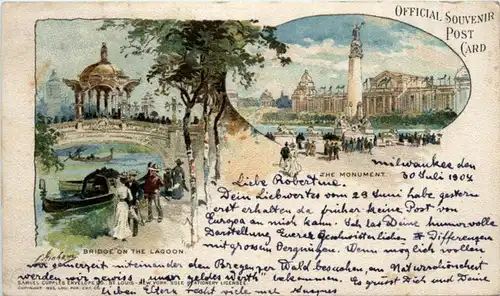 OFFICIAL SOUVENIR
POST
CARD
THE MONUMENT.
Milwaukee den
30 Juli 1904
Liebe Robertine.
Dein Liebwertes vom 29 Juni habe gestern
erst erhalten da früher keine Post von
Europa an mich kam. Ich las Deine humorvolle
Darstellung Eurer Geschwisterlichen Differenzen
mit grossem Vergnügen. Wenn möglich
BRIDGE ON THE LAGOON
seinerzeit miteinander den Bregenzer Wald besuchen, an Naturschönheit
werden wir gewiss unser geldes werth haben. Es grüsst Dich und Deine
SAMUEL CUPPLES ENVELOPE CO. ST. LOUIS - NEW YORK SOLE STATIONERY LICENSEE.
lieben Eltern recht viele mal